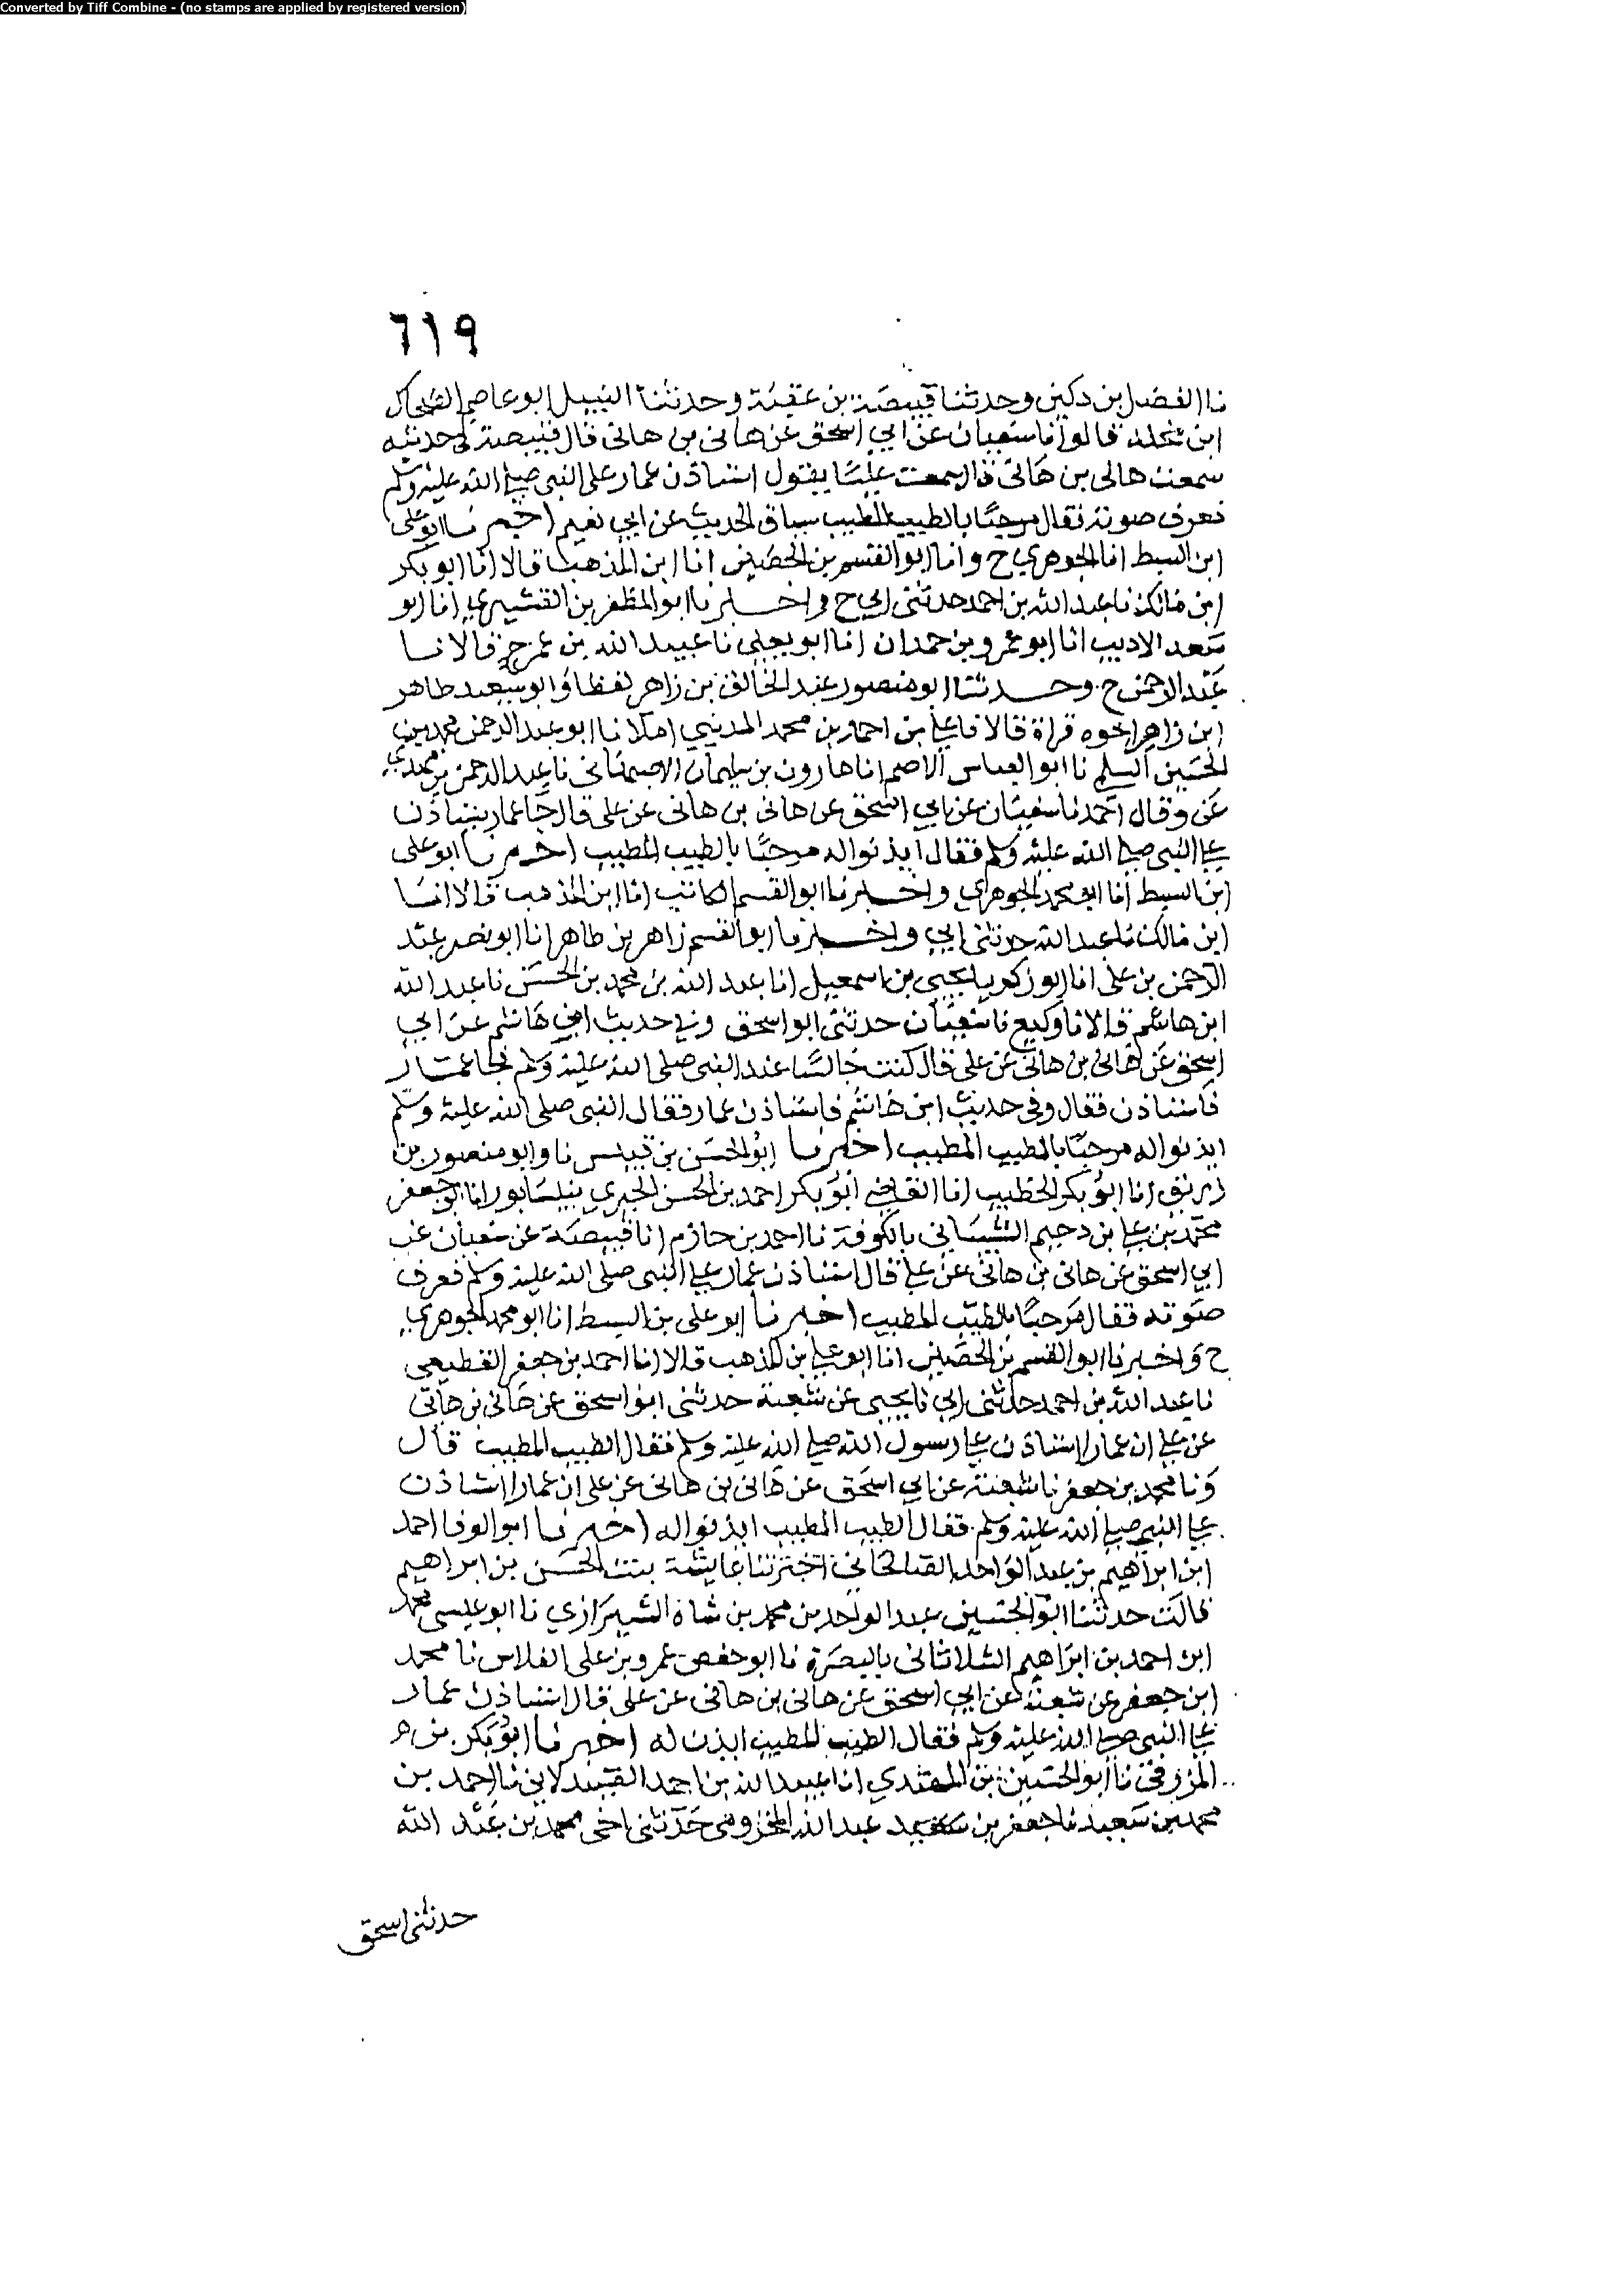 Converted by Tiff Combine - (no stamps are applied by registered version)
٦١٩
نا الفضل بن دكين وحدثنا قبيصة بن عقبة وحدثنا النبيل ابو عاصم الضحاك
ابن مخلد قالوا نا سفيان عن ابي اسحق عن هانى بن هانى قال قبيصة في حديثه
سمعت هانى بن هانى قال سمعت عليا يقول استاذن عمار على النبى صلى الله عليه وسلم
فعرف صوته فقال مرحبا بالطيب المطيب سياق الحديث عن ابي نعيم اخبرنا ابو على
ابن السبط انا الجوهري ح وانا ابو القسم بن الحصين انا ابن المذهب قالا انا ابو بكر
ابن مالك نا عبد الله بن احمد حدثنى ابي ح واخبرنا ابو المظفر بن القشيري انا ابو
سعد الاديب انا ابو عمرو بن حمدان انا ابو يعلى نا عبيد الله بن عمر قالا نا
عبد الرحمن ح وحدثنا ابو منصور عبد الخالق بن زاهر لفظا وابو سعيد طاهر
ابن زاهر اخوه قراة قالا نا على بن احمد بن محمد المديني املا نا ابو عبد الرحمن محمد بن
الحسين السلمي نا ابو العباس الاصم نا هارون بن سليمان الاصبهانى نا عبد الرحمن بن مهدي
عن وقال احمد نا سفيان عن ابي اسحق عن هانى بن هانى عن على قال جا عمار يستاذن
على النبى صلى الله عليه وسلم فقال ايذنوا له مرحبا بالطيب المطيب اخبرنا ابو على
ابن السبط انا ابو محمد الجوهري واخبرنا ابو القسم الكاتب انا ابن المذهب قالا انا
ابن مالك نا عبد الله حدثنى ابي واخبرنا ابو القسم زاهر بن طاهر انا ابو نصر عبد
الرحمن بن على انا ابو زكريا يحيى بن اسمعيل انا عبد الله بن محمد بن الحسن نا عبد الله
ابن هاشم قالا نا وكيع نا سفيان حدثنى ابو اسحق وفي حديث ابن هاشم عن ابي
اسحق عن هانى بن هانى عن على قال كنت جالسا عند النبى صلى الله عليه وسلم فجا عمار
فاستاذن فقال وفى حديث ابن هاشم فاستاذن عمار فقال النبى صلى الله عليه وسلم
ايذنوا له مرحبا بالطيب المطيب اخبرنا ابو الحسن بن قبيس نا وابو منصور بن
زريق انا ابو بكر الخطيب انا القاضي ابو بكر احمد بن الحسن الحيري بنيسابور انا ابو جعفر
محمد بن على بن دحيم الشيباني بالكوفة نا احمد بن حازم انا قبيصة عن سفيان عن
ابي اسحق عن هانى بن هانى عن على قال استاذن عمار على النبى صلى الله عليه وسلم فعرف
صوته فقال مرحبا بالطيب المطيب اخبرنا ابو على بن السبط انا ابو محمد الجوهري
ح واخبرنا ابو القسم بن الحصين انا ابو على بن المذهب قالا انا احمد بن جعفر القطيعي
نا عبد الله بن احمد حدثنى ابي نا يحيى عن شعبة حدثنى ابو اسحق عن هانى بن هانى
عن على ان عمارا استاذن على رسول الله صلى الله عليه وسلم فقال الطيب المطيب قال
ونا محمد بن جعفر نا شعبة عن ابي اسحق عن هانى بن هانى عن على ان عمارا استاذن
على النبي صلى الله عليه وسلم فقال الطيب المطيب ايذنوا له اخبرنا ابو الوفا احمد
ابن ابراهيم بن عبد الواحد الصالحاني اخبرتنا عايشة بنت الحسن بن ابراهيم
قالت حدثنا ابو الحسين عبد الواحد بن محمد بن شاه الشيرازي نا ابو عيسى محمد
ابن احمد بن ابراهيم الشلاثانى بالبصرة نا ابو حفص عمرو بن على الفلاس نا محمد
ابن جعفر عن شعبة عن ابي اسحق عن هانى بن هانى عن على قال استاذن عمار
على النبى صلى الله عليه وسلم فقال الطيب المطيب ايذن له اخبرنا ابو بكر
المزرفى نا ابو الحسين بن المهتدي انا عبيد الله بن احمد الصيدلانى نا احمد بن
محمد بن سعيد نا جعفر بن عبد الله المخزومى حدثنى اخى محمد بن عبد الله
حدثنى اسحق